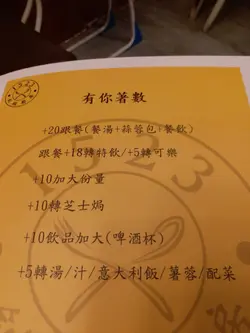 有你著數
+20跟餐(餐湯+蒜蓉包+餐飲)
跟餐+18轉特飲/+5轉可樂
+10加大份量
+10轉芝士焗
+10飲品加大(啤酒杯)
+5轉湯/汁/意大利飯/薯蓉/配菜
1523